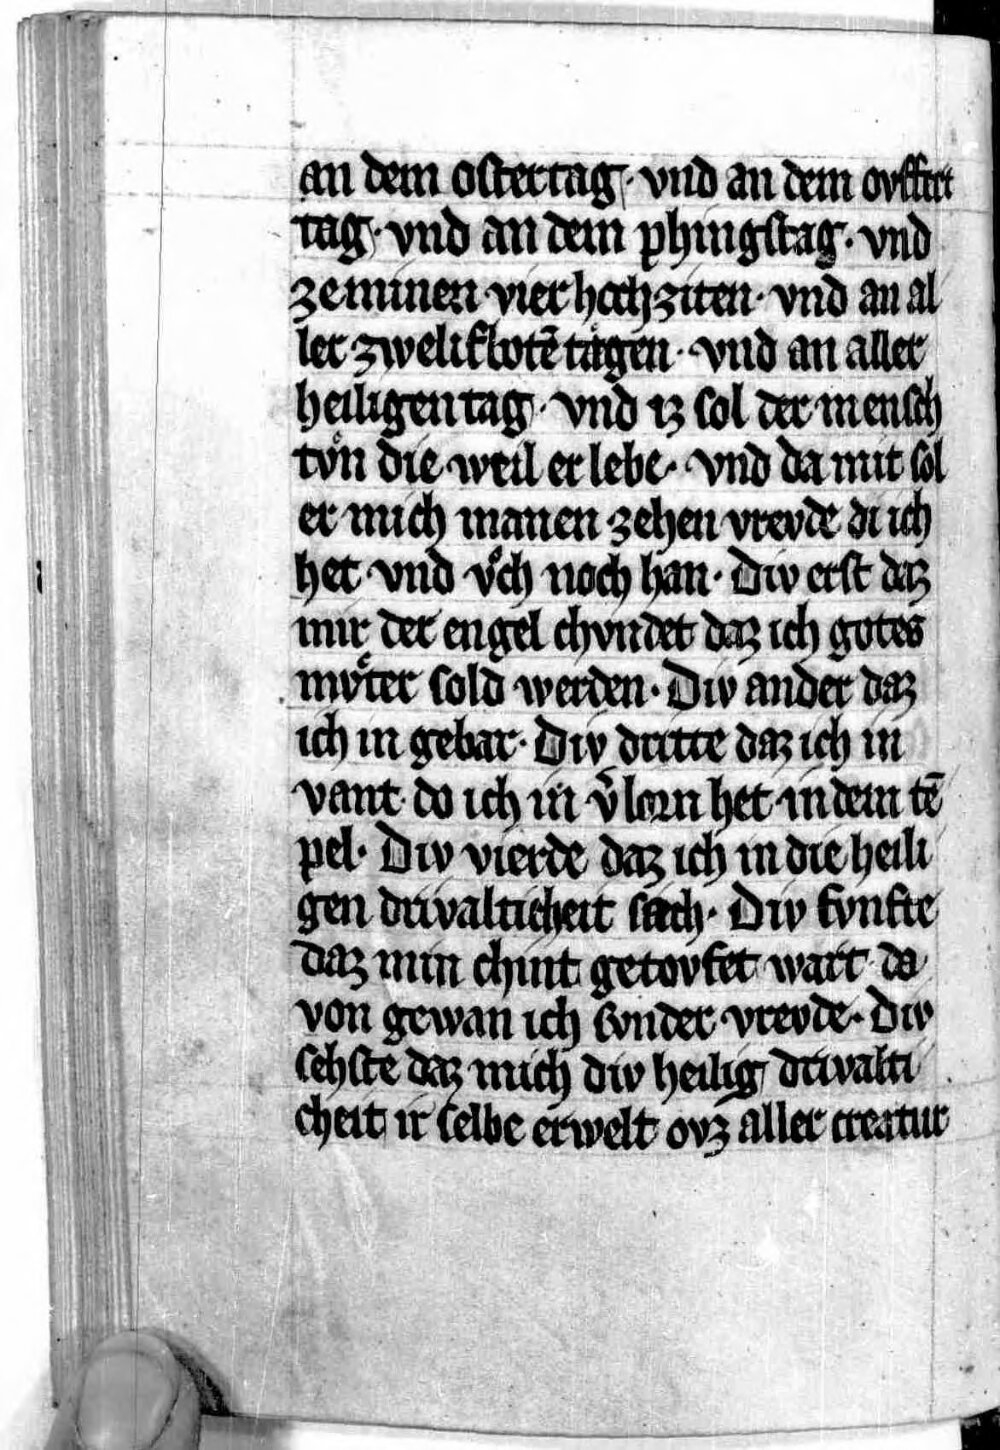 an dem ostertag · vnd an dem ovffert
tag · vnd an dem phingstag · vnd
ze minen vier hochziten · vnd an al
ler zwelifbotē tagen · vnd an aller
heiligen tag · vnd iz sol der mensch
tvͦn die weil er lebe · vnd da mit sol
er mich manen zehen vrevde di ich
het vnd vͦch noch han · Div erst daz
mir der engel chvndet daz ich gotes
mvͦter sold werden · Div ander daz
ich in gebar · Div dritte daz ich in
vant do ich in v̄lorn het in dem tē
pel · Div vierde daz ich in die heili
gen drivalticheit sach · Div fvnfte
daz min chint getovfet wart da
von gewan ich svnder vrevde · Div
sehste daz mich div heilig drivalti
cheit ir selbe erwelt ovz aller creatur